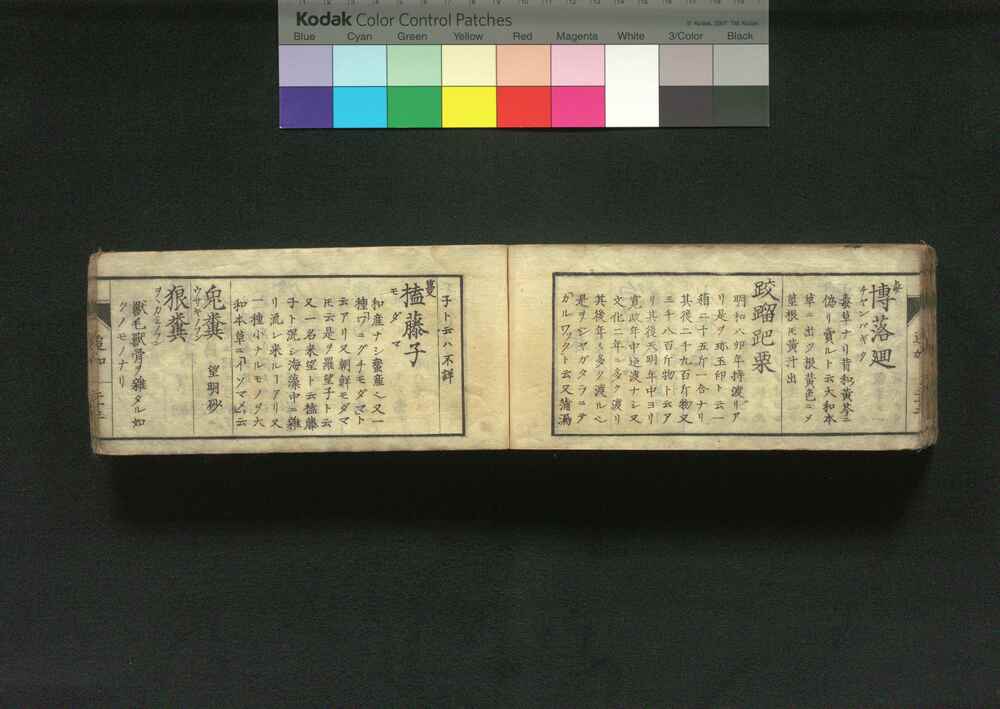 Kodak Color Control Patches
© Kodak, 2007 TM: Kodak
Blue Cyan Green Yellow Red Magenta White 3/Color Black
博落廻
チヤンパギク
毒草ナリ昔和黄芩ニ
偽リ賣ルト云大和本
草ニ出ツ根黄色ニメ
莖根㪽黄汁出
跤蹓跁栗
明和八卯年持渡リア
リ是ヲ珎玉印ト云一
箱二十五斤一合ナリ
其後二千九百斤物又
三千八百斤物ト云ア
リ其後天明年中ヨリ
寛政年中迠渡ナシ又
文化二年ニ多ク渡リ
其後年々多ク渡ル
是ヲジヤガタラニテ
ガルワフクト云又蒲漏
子ト云ハ不詳
蔓
榼藤子
モダマ
和産ナシ蛮産
又一
種ワニグチモダマト
云アリ又朝鮮モダマ
㪽云是ヲ羅望子ト云
又一名米望ト云榼藤
子ト混シ海藻中ニ雜
リ流レ来ルーアリ又
一種小ナルモノヲ大
和本草ニイソマメト云
兎糞 望明砂
ウサギノフン
狼糞
ヲヽカミノフン
獣毛獣骨ヲ雜タル如
クノモノナリ
追加